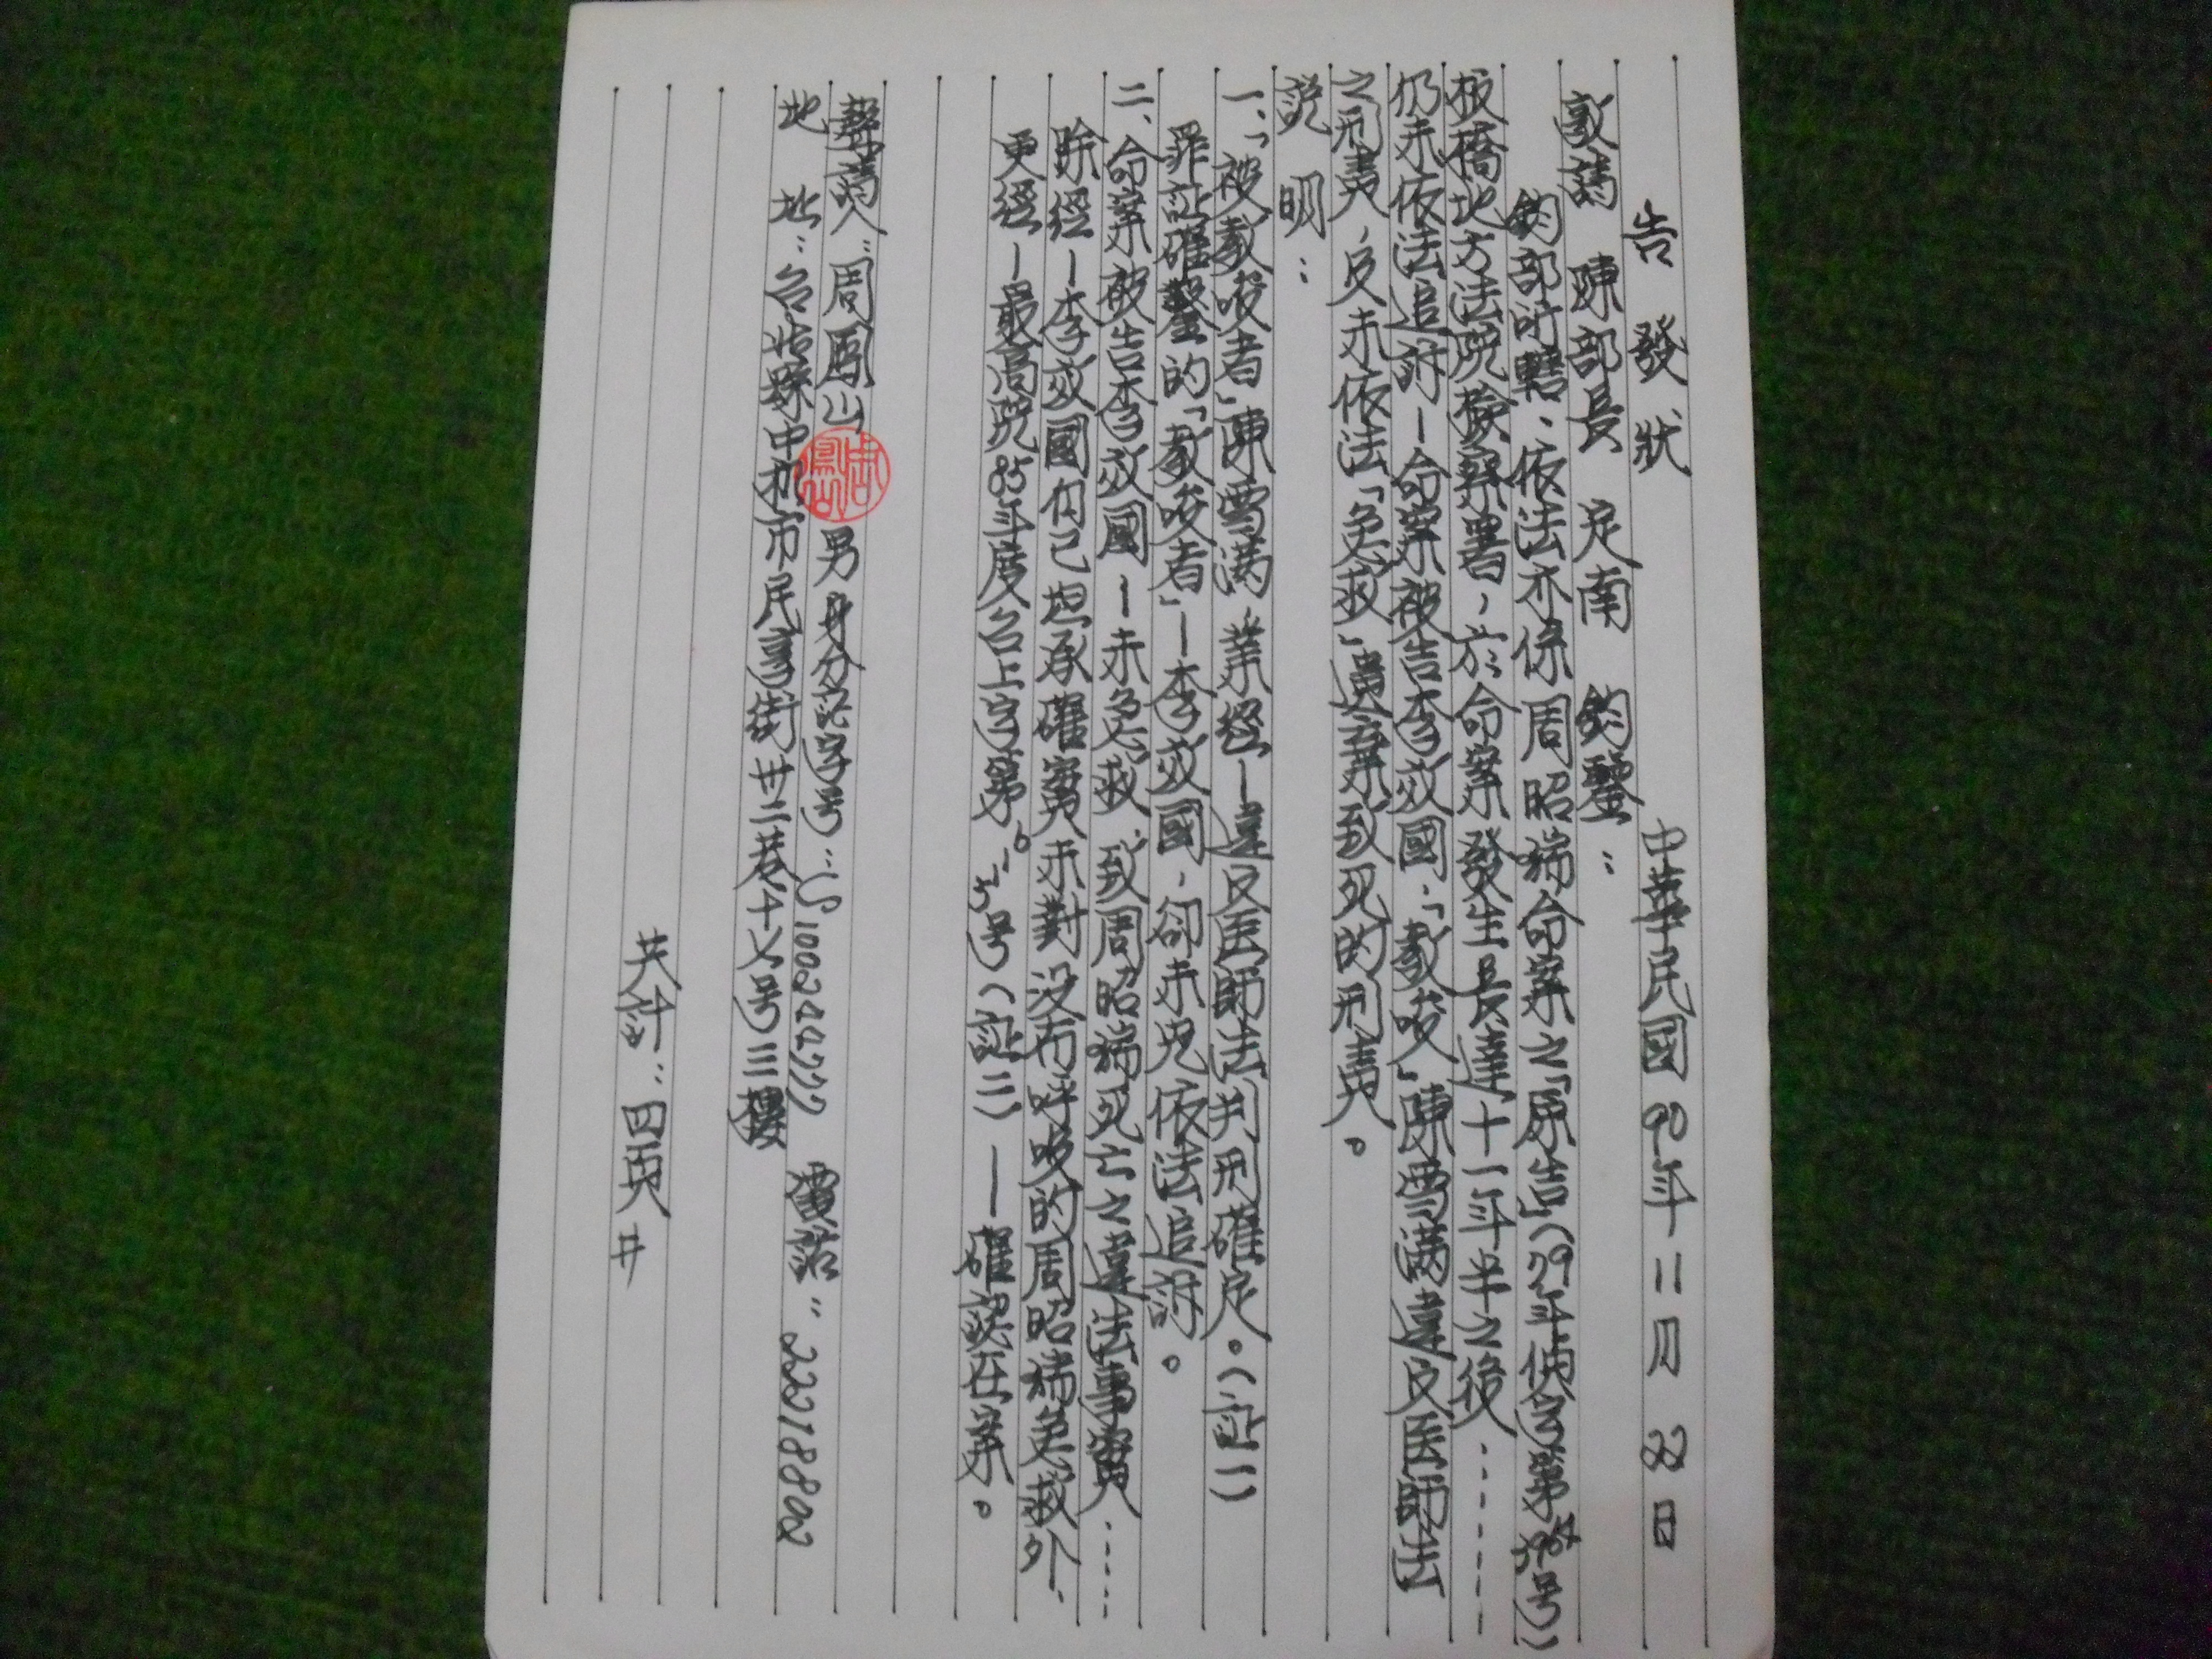 告發狀 中華民國90年11月22日
敬請 陳部長 定南 鈞鑒：
鈞部所轄，依法亦係周昭瑞命案之「原告」(79年偵字第 号)
板橋地方法院檢察署，於命案發生長達十一年半之後……
仍未依法追訴—命案被告李政國，「教唆」陳雪满違反医師法
之刑責，反未依法「急救」遺棄致死的刑責。
説 明：
一、「被教唆者」陳雪满，業經—違反医師法判刑確定。(証一)
罪証確鑿的「教唆者」—李政國，卻未見依法追訴。
二、命案被告李政國—未急救，致周昭瑞死亡之違法事實……
除經—李政國自己坦承確實未對没有呼吸的周昭瑞急救外、
更經—最高院85年度台上字第6115号(証二)—確認在案。
聲請人：周鳳山 周鳳山 男 身分証字号：S100244777 電話：22218802
地 址：台北縣中和市民享街卅二巷十七号三樓
共計：四頁 #